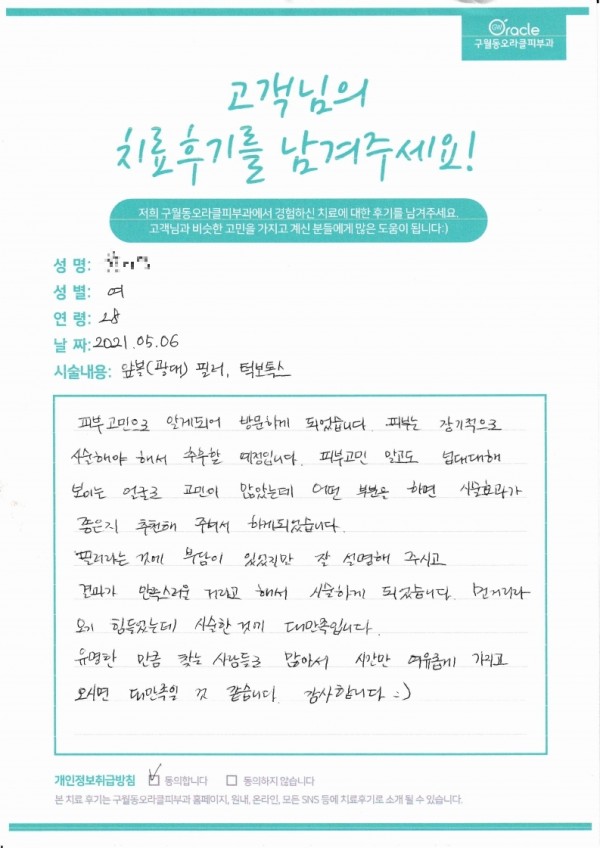 Oracle
구월동오라클피부과
고객님의
치료후기를 남겨주세요!
저희 구월동오라클피부과에서 경험하신 치료에 대한 후기를 남겨주세요.
고객님과 비슷한 고민을 가지고 계신 분들에게 많은 도움이 됩니다:)
성 명:
성 별: 여
연 령: 28
날 짜: 2021.05.06
시술내용: 앞볼(광대) 필러, 턱보톡스
피부고민으로 알게되어 방문하게 되었습니다. 피부는 장기적으로
시술해야 해서 추후할 예정입니다. 피부고민 말고도 넙대대해
보이는 얼굴로 고민이 많았는데 어떤 부분을 하면 시술효과가
좋은지 추천해 주셔서 하게되었습니다.
필러라는 것에 부담이 있었지만 잘 설명해 주시고
결과가 만족스러울 거라고 해서 시술하게 되었습니다. 먼거리라
오기 힘들었는데 시술한것이 대만족입니다.
유명한 만큼 찾는 사람들도 많아서 시간만 여유롭게 가지고
오시면 대만족일 것 같습니다. 감사합니다 :)
개인정보취급방침 동의합니다 동의하지 않습니다
본 치료 후기는 구월동오라클피부과 홈페이지, 원내, 온라인, 모든 SNS 등에 치료후기로 소개 될 수 있습니다.